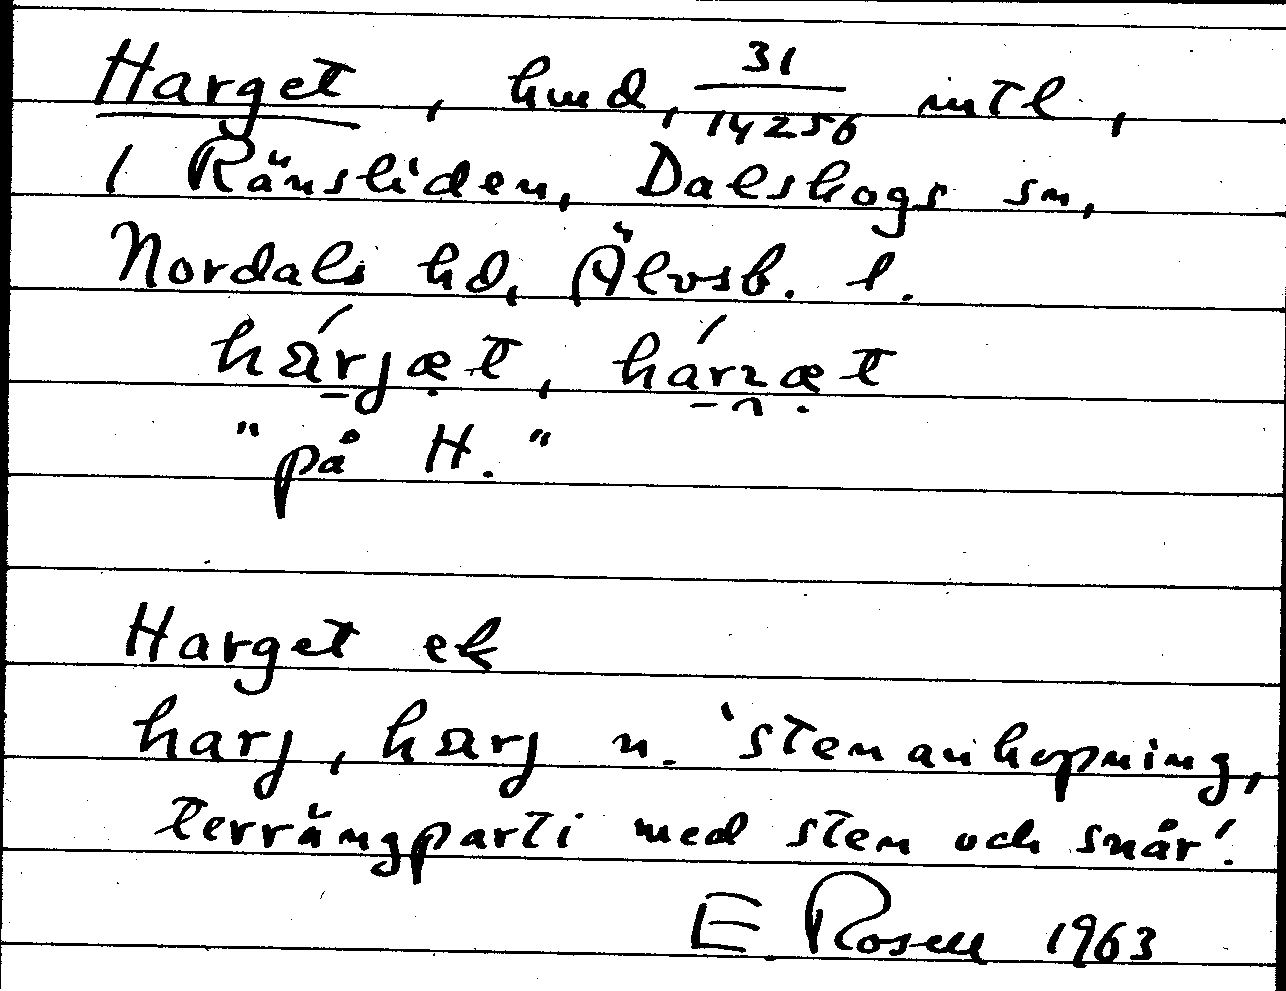 Harget, hmd, 31/14256 mtl,
1 Ränsliden, Dalskogs sn,
Nordals hd, Älvsb. l.
hárjæt, hárzæt
"på H."
Harget ek
harj, harj n. 'stenanhopning,
terrängparti med sten och snår'.
E. Rosell 1963